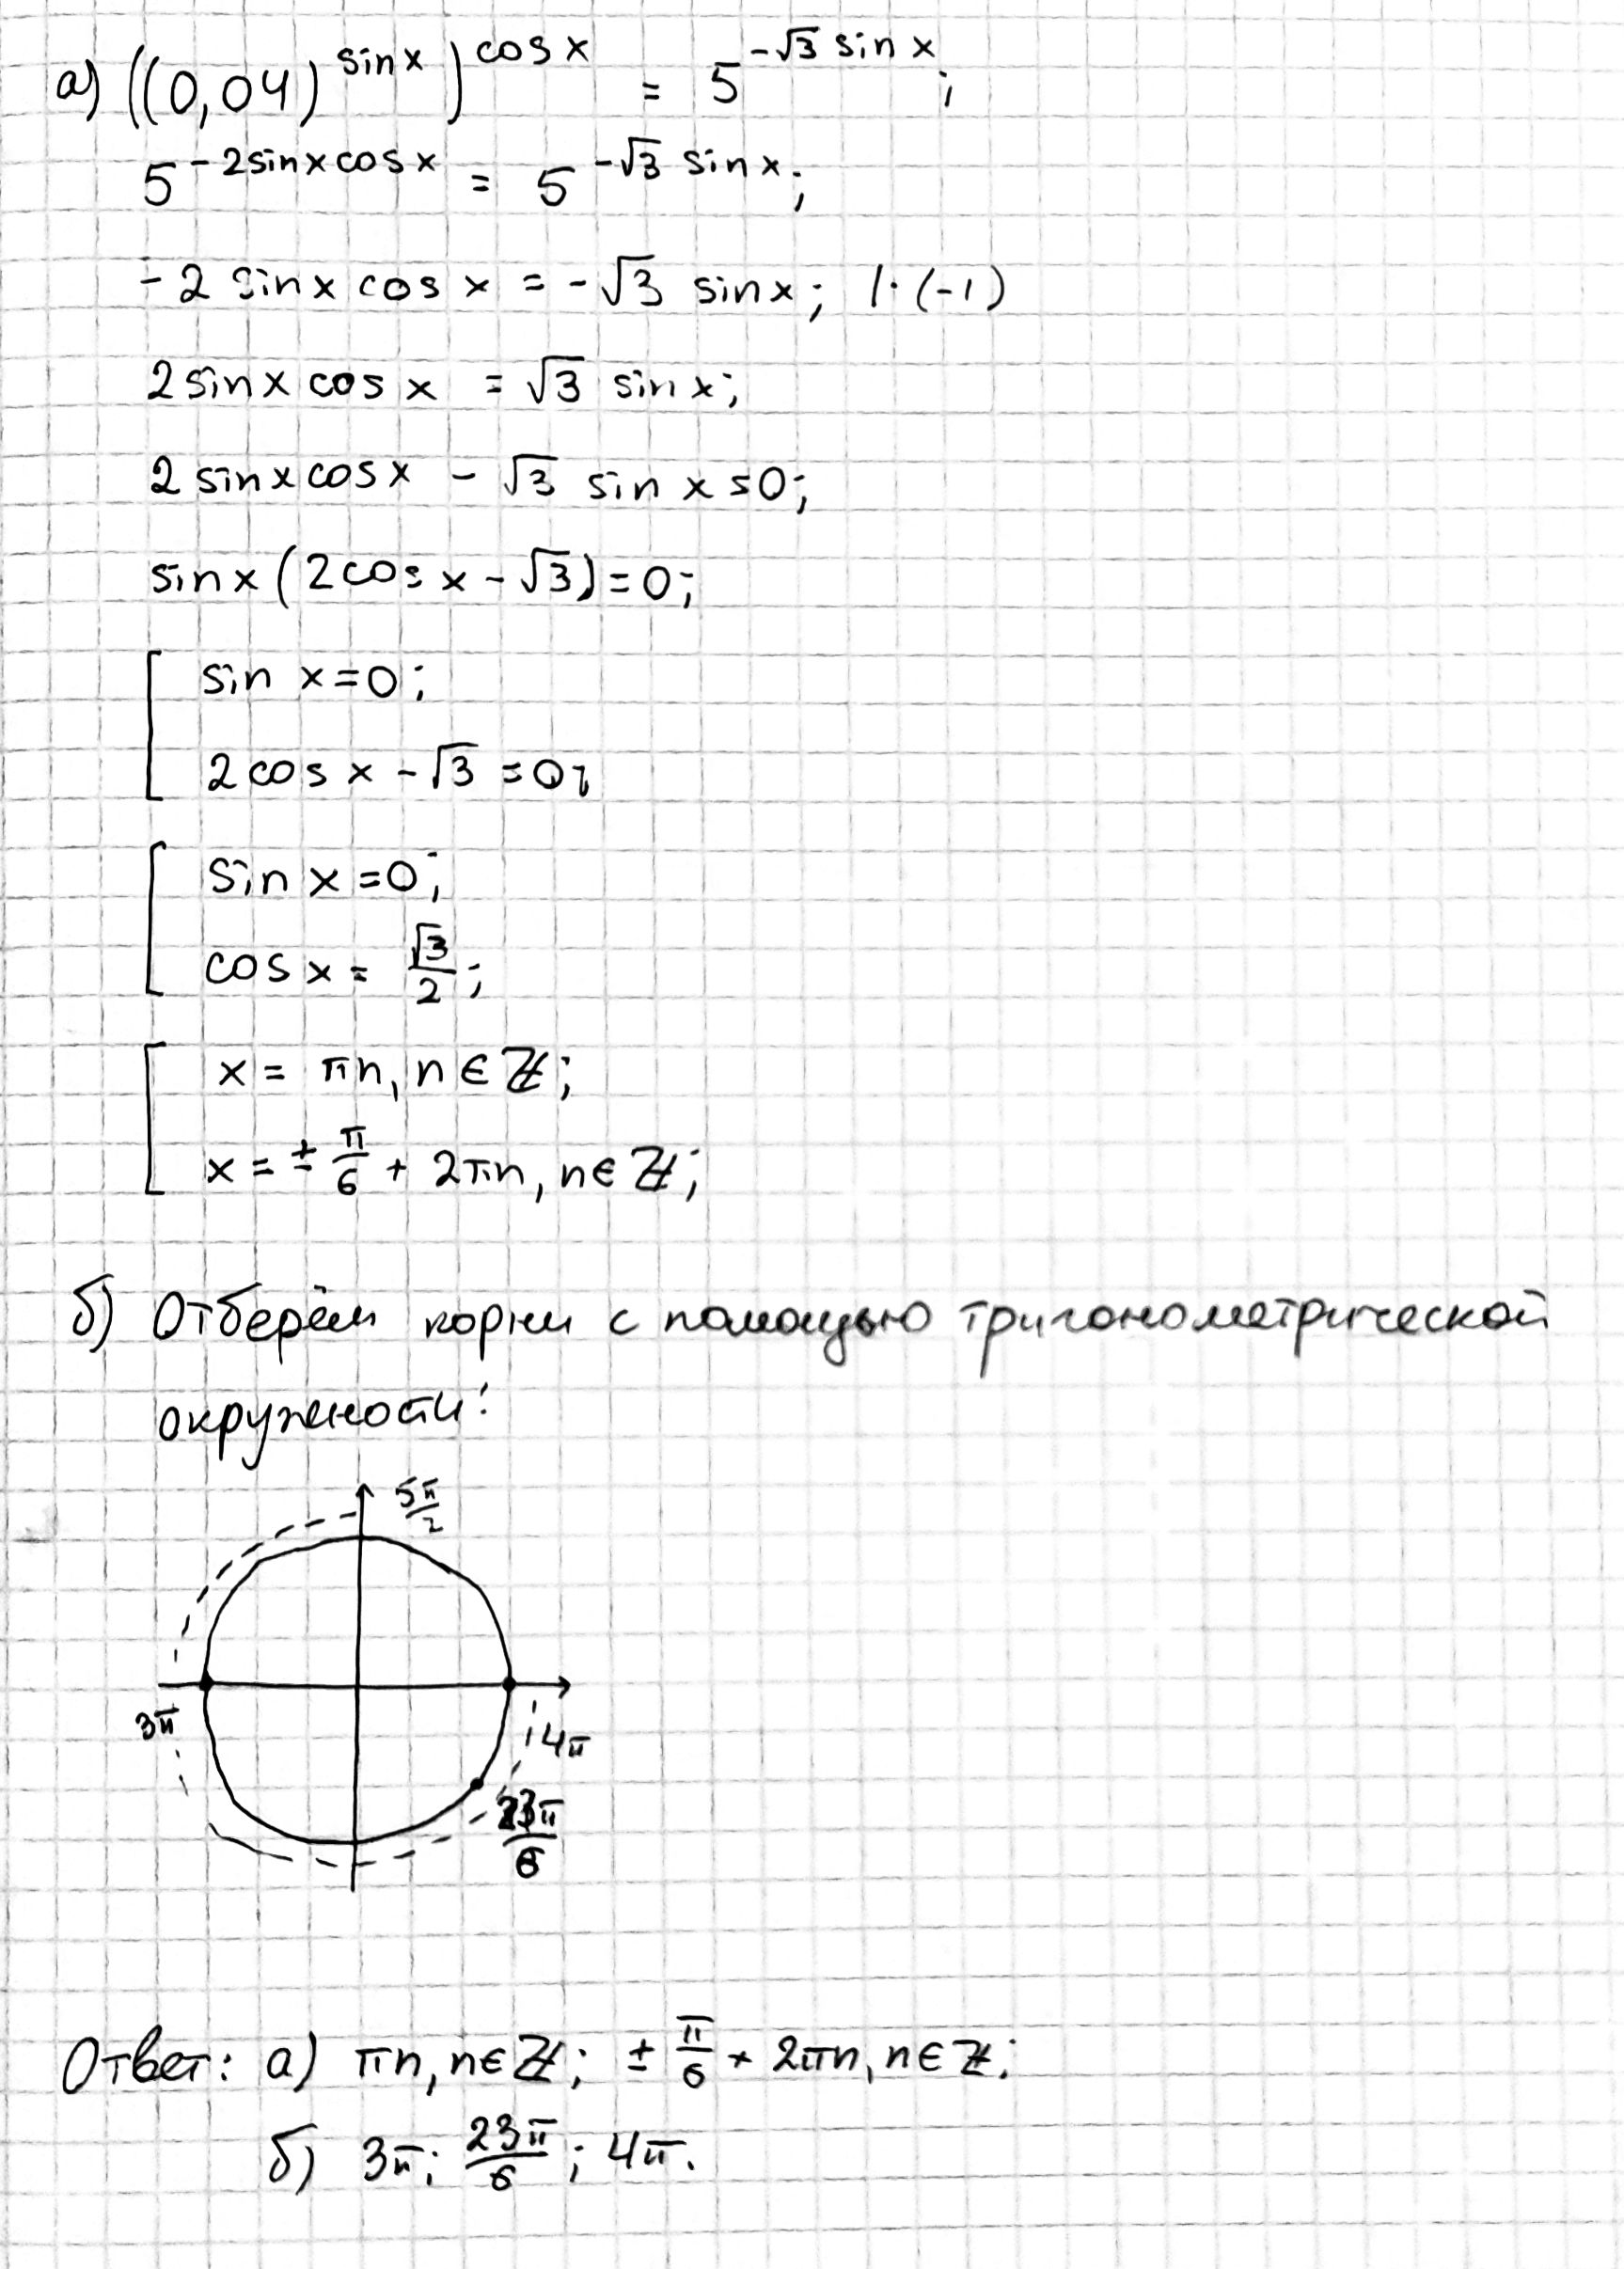 а) ((0,04)^{sin x})^{cos x} = 5^{-√3 sin x};
5^{-2sin x cos x} = 5^{-√3 sin x};
-2 sin x cos x = -√3 sin x; |·(-1)
2 sin x cos x = √3 sin x;
2 sin x cos x - √3 sin x = 0;
sin x (2cos x - √3) = 0;
[ sin x = 0;
2cos x - √3 = 0;
[ sin x = 0;
cos x = √3/2;
[ x = πn, n ∈ ℤ;
x = ± π/6 + 2πn, n ∈ ℤ;
б) Отберём корни с помощью тригонометрической
окружности:
5π/2
3π
4π
23π/6
Ответ: а) πn, n ∈ ℤ; ± π/6 + 2πn, n ∈ ℤ;
б) 3π; 23π/6; 4π.